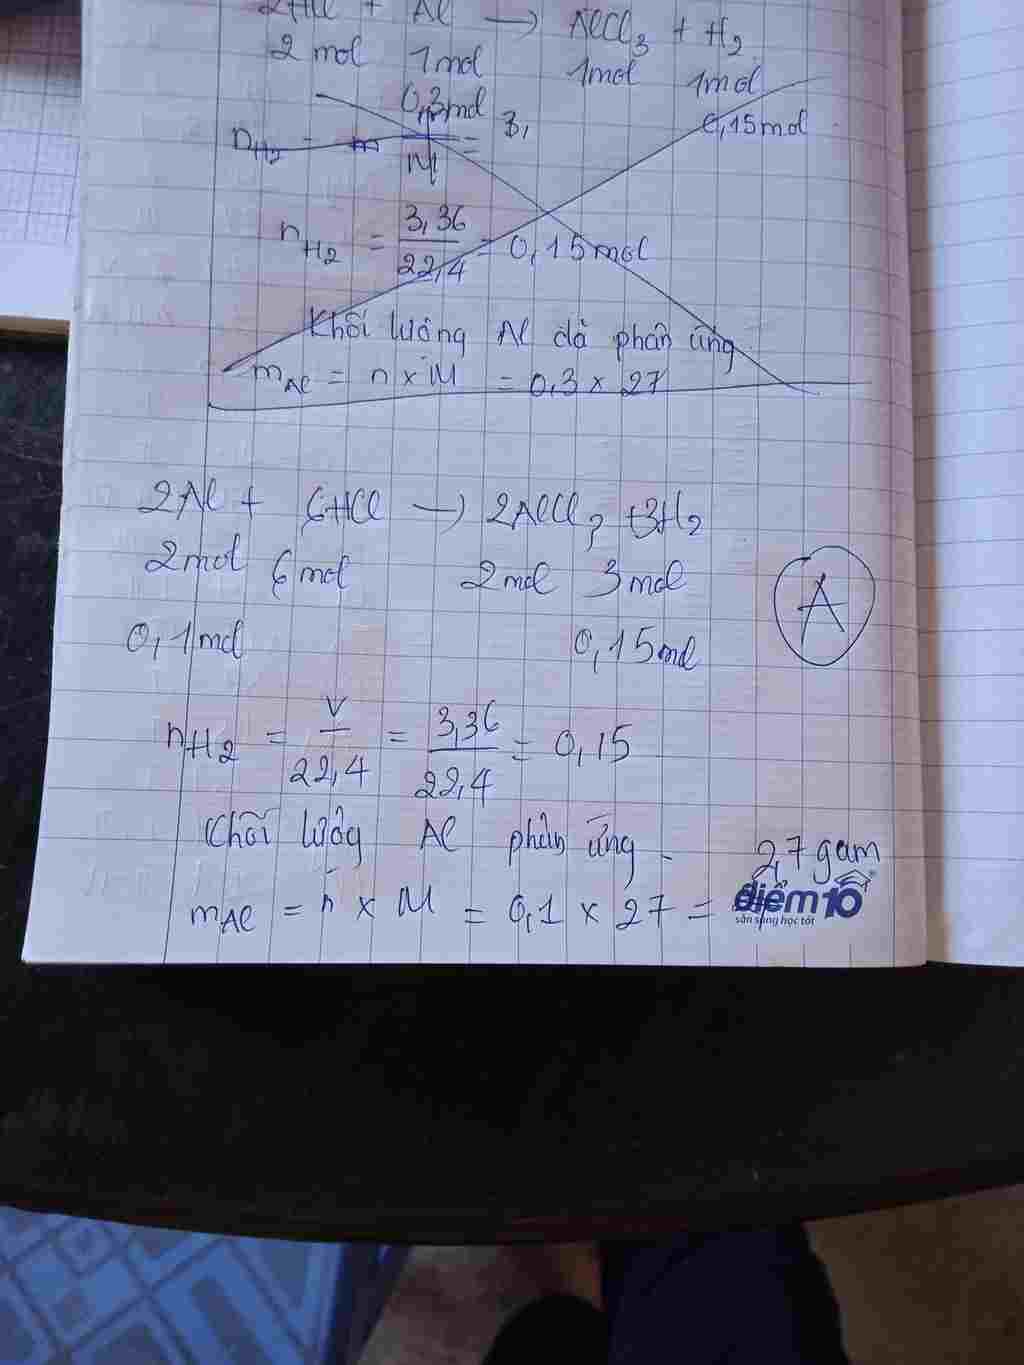 2HCl + Al → AlCl3 + H2
2 mol 1mol 1mol 1mol
0,3mol 0,15mol
nH2 = m/M = 3,
nH2 = 3,36/22,4 = 0,15mol
Khối lượng Al đã phản ứng
mAl = n x M = 0,3 x 27
2Al + 6HCl → 2AlCl3 + 3H2
2mol 6mol 2mol 3mol
0,1mol 0,15mol
A
nH2 = V/22,4 = 3,36/22,4 = 0,15
Khối lượng Al phản ứng
mAl = n x M = 0,1 x 27 = 2,7 gam
điểm10
sẵn sàng học tốt